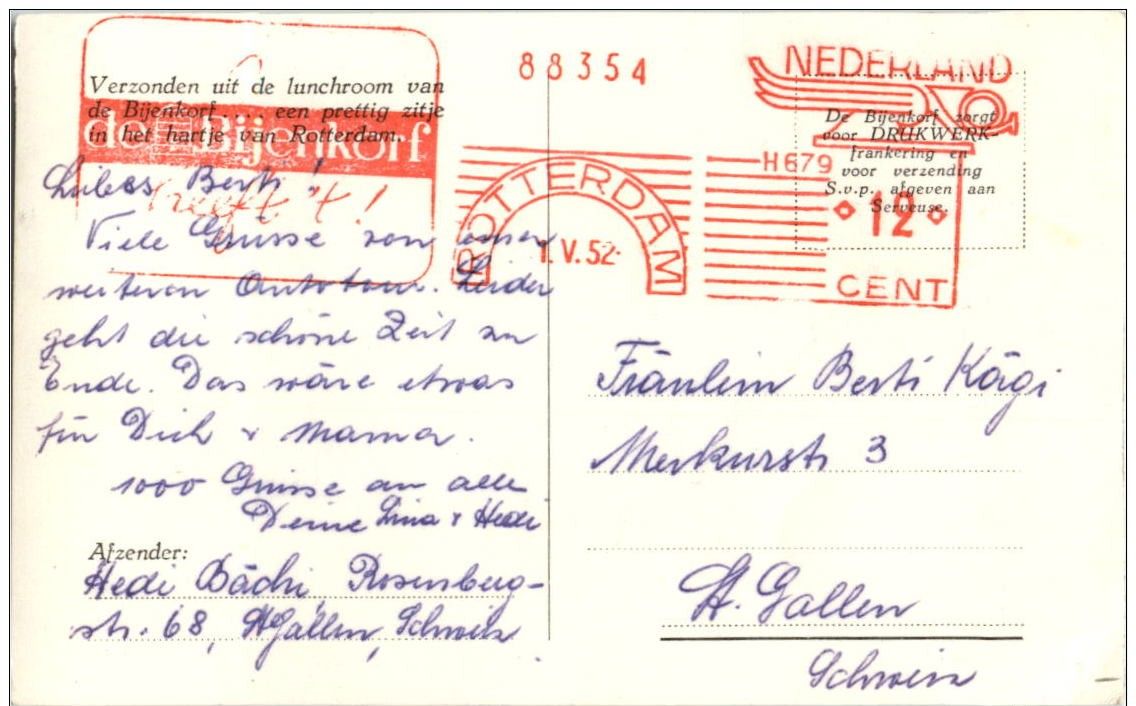 88354
NEDERLAND
Verzonden uit de lunchroom van
de Bijenkorf.... een prettig zitje
in het hartje van Rotterdam.
de Bijenkorf
heeft 't!
ROTTERDAM
1.V.52
H679
12
CENT
De Bijenkorf zorgt
voor DRUKWERK-
frankering en
voor verzending
S.v.p. afgeven aan
Serveuse.
Liebes Berti!
Viele Grüsse von einer
weiteren Autotour. Leider
geht die schöne Zeit zu
Ende. Das wäre etwas
für Dich & Mama.
1000 Grüsse an alle
Deine Lina & Hedi
Afzender:
Hedi Bächi, Rosenberg-
str. 68, St Gallen, Schweiz
Fräulein Berti Kägi
Merkurstr 3
St. Gallen
Schweiz